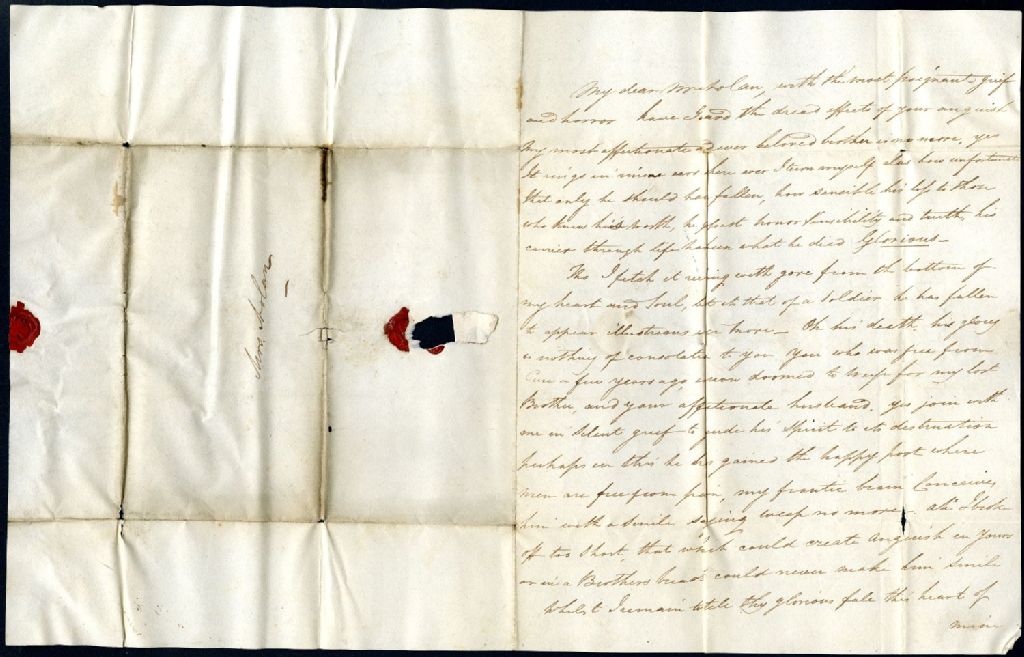 Mrs. Nolan
My dear Mrs Nolan, with the most poignant grief
and horror have I read the dread effects of your anguish
My most affectionate and ever beloved brother is no more, yes
It rings in mine ears here ever I turn myself alas how unfortunate
that only he should have fallen, how sensible his to those
who knew his worth, he honor sensibility and truth, his
carrier through life what he died Glorious -
Tho I fetch it with gore from the bottom of
my heart and soul, let it that of a Soldier he has fallen
to appear illustrious more - Oh his death, his glory
is nothing of consolation to you, you who was free from
Care a few years ago, doomed to weep for my lost
Brother, and your affectionate husband. yes join with
me in Silent grief to his Spirit to its destination
perhaps in this he has gained the happy port where
men are free from pain, my frantic brain Conceives
him with a Smile saying weep no more - ah I broke
off too Short, that which could create anguish in yours
or in a Brothers could never make him Smile
Whilst I remain thy glorious this heart of
mine